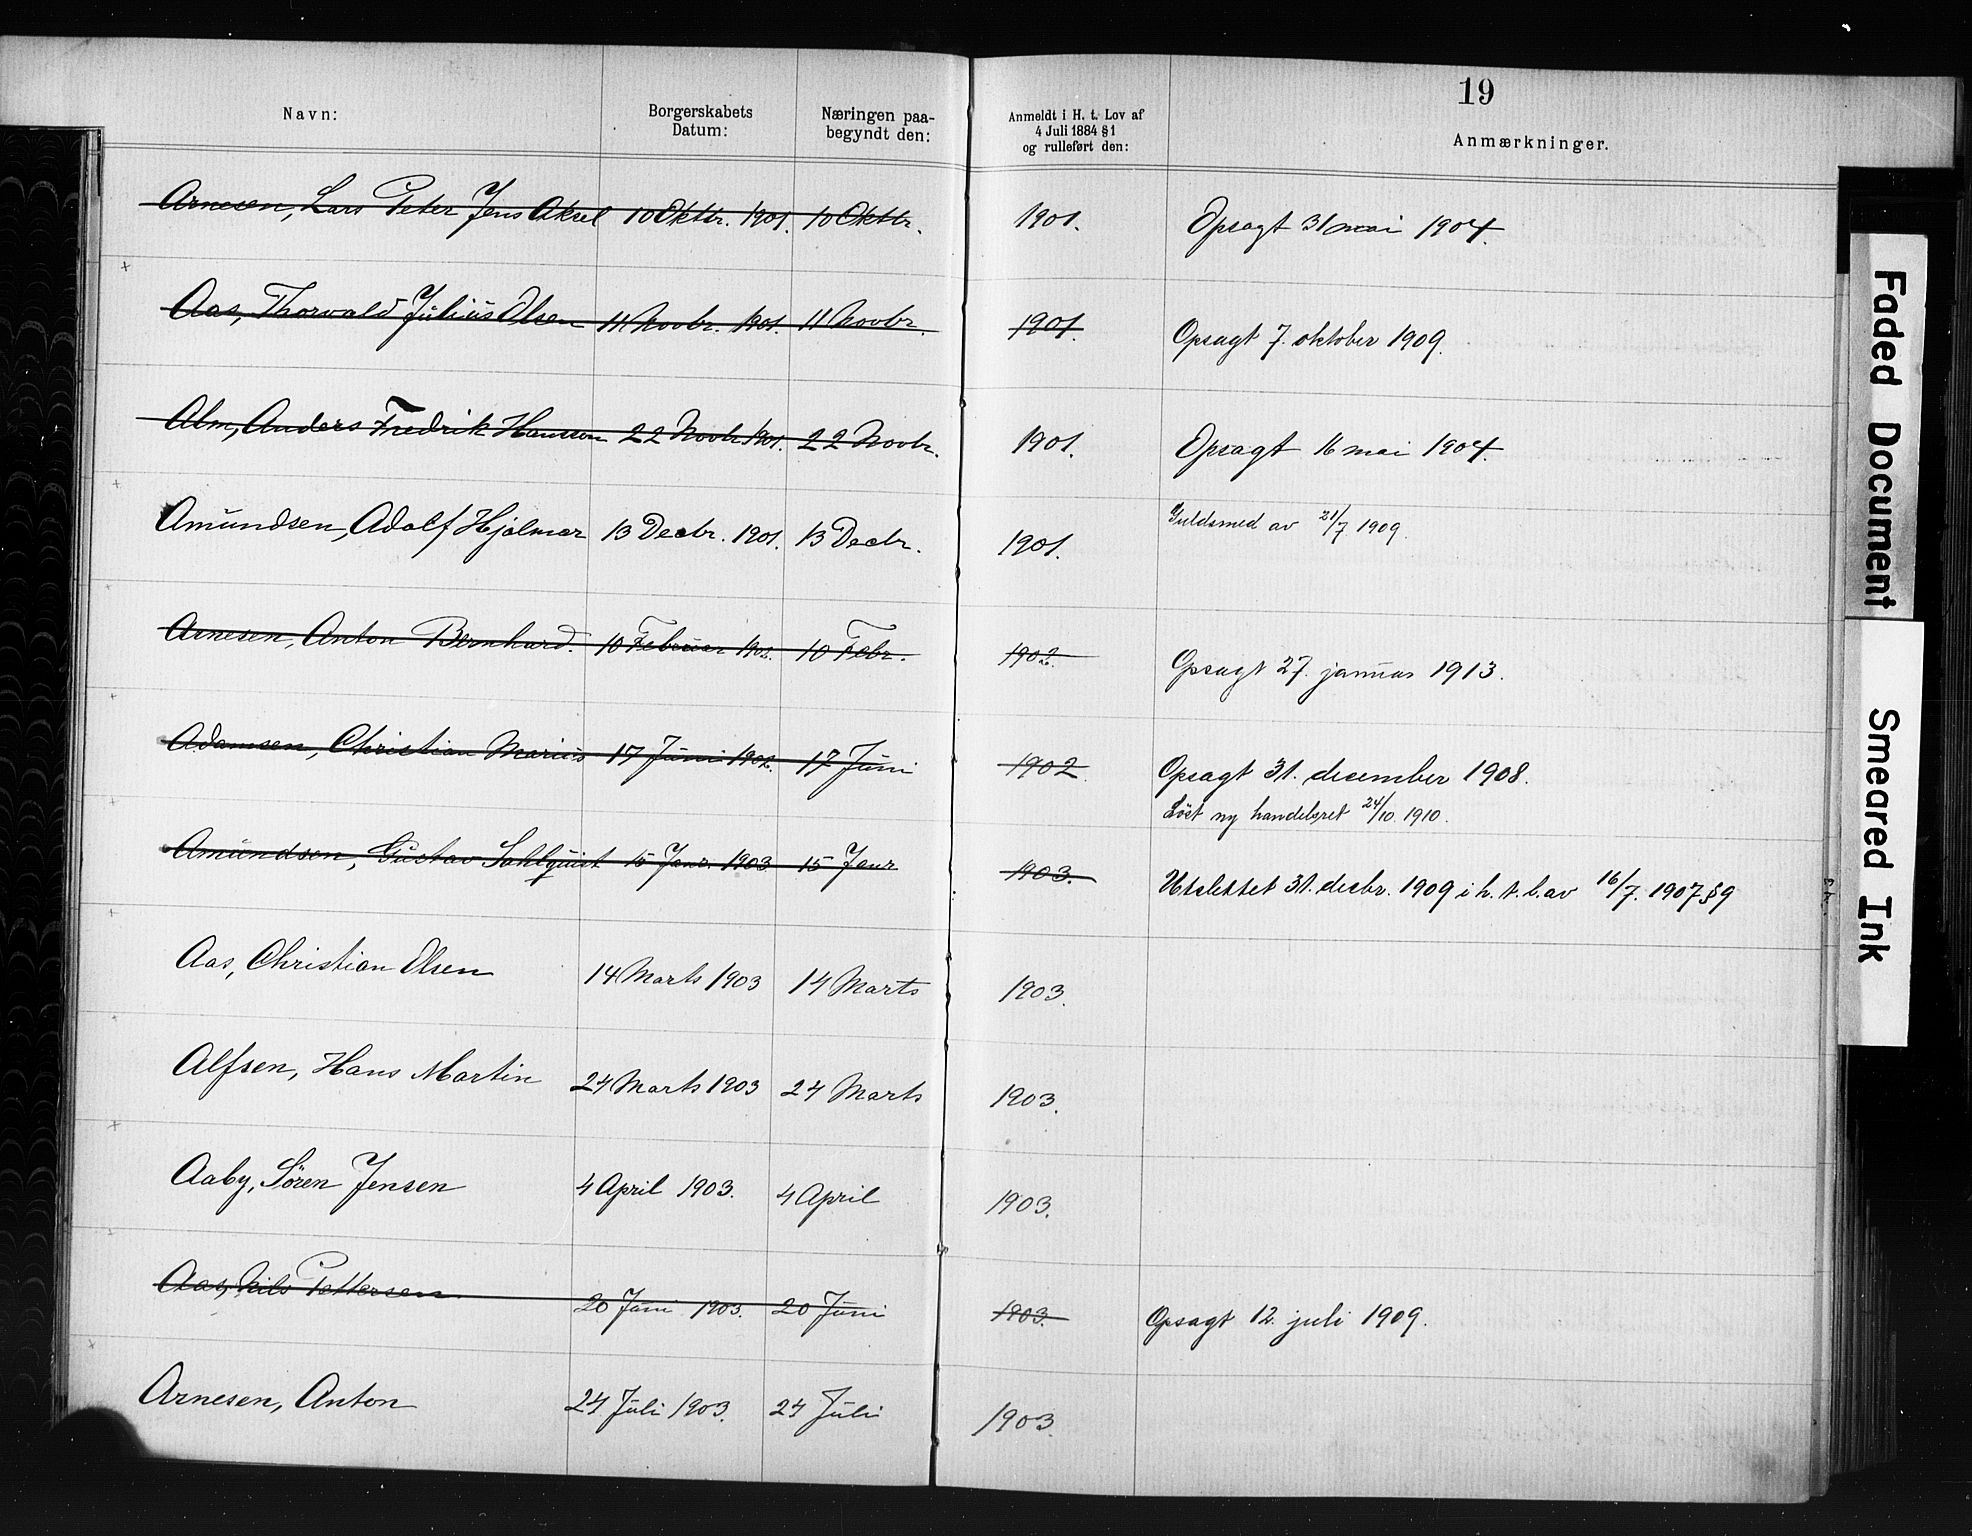 19
Navn: Borgerskabets Datum: Næringen paa-begyndt den: Anmeldt i H. t. Lov af 4 Juli 1884 § 1 og rulleført den: Anmærkninger.
Arnesen, Lars Peter Jens Aksel 10 Oktbr. 1901. 10 Oktbr. 1901. Opsagt 31 mai 1904.
Aas, Thorvald Julius Olsen 11 Novbr. 1901. 11 Novbr. 1901. Opsagt 7. oktober 1909.
Alm, Anders Fredrik Hansson 22 Novbr 1901. 22 Novbr. 1901. Opsagt 16 mai 1904.
Amundsen, Adolf Hjalmar 13 Decbr. 1901. 13 Decbr. 1901. Guldsmed av 21/7 1909.
Arnesen, Anton Bernhard. 10 Februar 1902. 10 Febr. 1902. Opsagt 27. januar 1913.
Adamsen, Christian Marius 17 Juni 1902. 17 Juni 1902. Opsagt 31. december 1908.
Löst ny handelsret 24/10. 1910.
Amundsen, Gustav Sahlquist 15 Janr. 1903. 15 Janr 1903. Utslettet 31. decbr. 1909 i h. t. l. av 16/7. 1907 § 9
Aas, Christian Olsen 14 Marts 1903 14 Marts 1903.
Alfsen, Hans Martin 24 Marts 1903 24 Marts 1903.
Aaby, Sören Jensen 4 April 1903. 4 April 1903.
Aas, Nils Pettersen 20 Juni 1903. 20 Juni 1903. Opsagt 12. juli 1909.
Arnesen, Anton 24 Juli 1903. 24 Juli 1903.
Faded Document
Smeared Ink